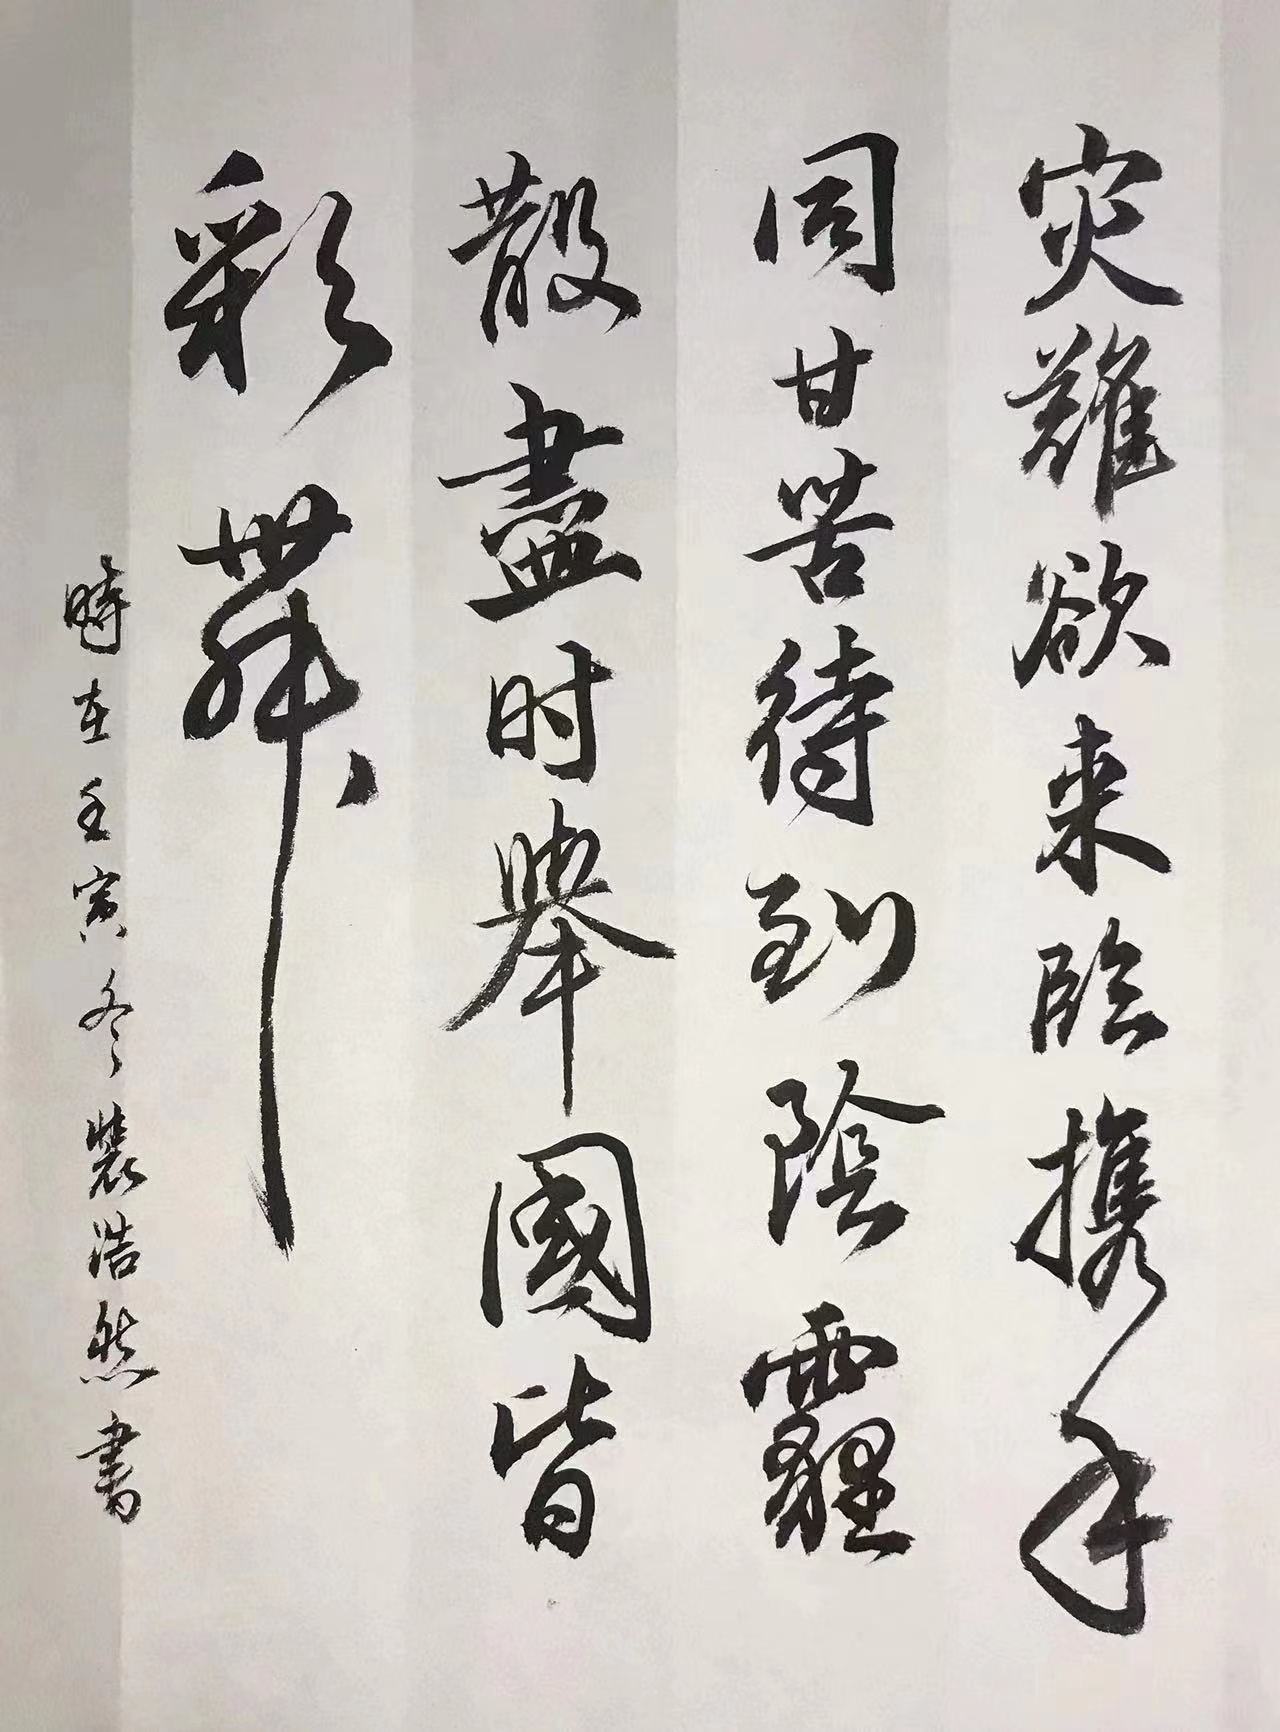 灾難欲来臨攜手
同甘苦待到陰霾
散盡时舉國皆
彩舞
時在壬寅冬裴浩然書